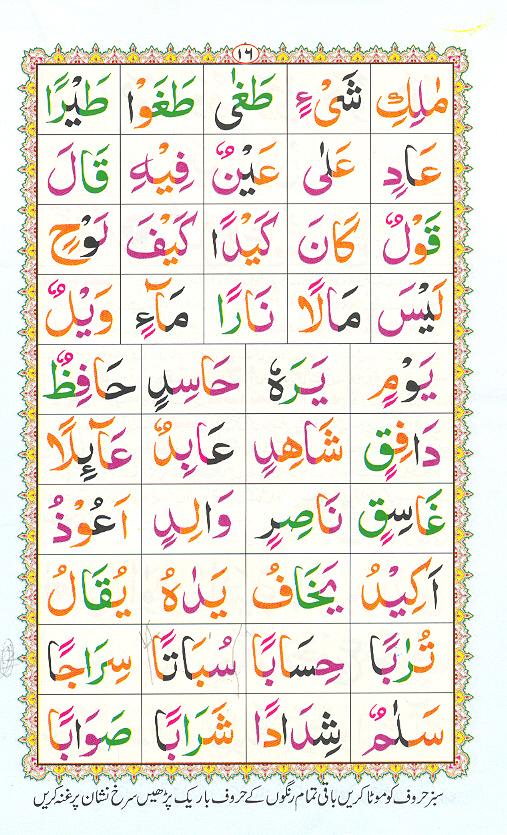 ١٦
مٰلِكِ شَیْءٍ طَغٰی طَغَوْا طَيْرًا
عَادٍ عَلٰی عَيْنٌ فِيْهِ قَالَ
قَوْلٌ كَانَ كَيْدًا كَيْفَ لَوْحٍ
لَيْسَ مَالًا نَارًا مَآءٍ وَيْلٌ
يَوْمٍ يَرَهٗ حَاسِدٍ حَافِظٌ
دَافِقٍ شَاهِدٍ عَابِدٌ عَآئِلًا
غَاسِقٍ نَاصِرٍ وَالِدٍ اَعُوْذُ
اَكِيْدُ يَخَافُ يَدٰهُ يُقَالُ
تُرٰبًا حِسَابًا سُبَاتًا سِرَاجًا
سَلٰمٌ شِدَادًا شَرَابًا صَوَابًا
سبز حروف کو موٹا کریں باقی تمام رنگوں کے حروف باریک پڑھیں سرخ نشان پر غنہ کریں